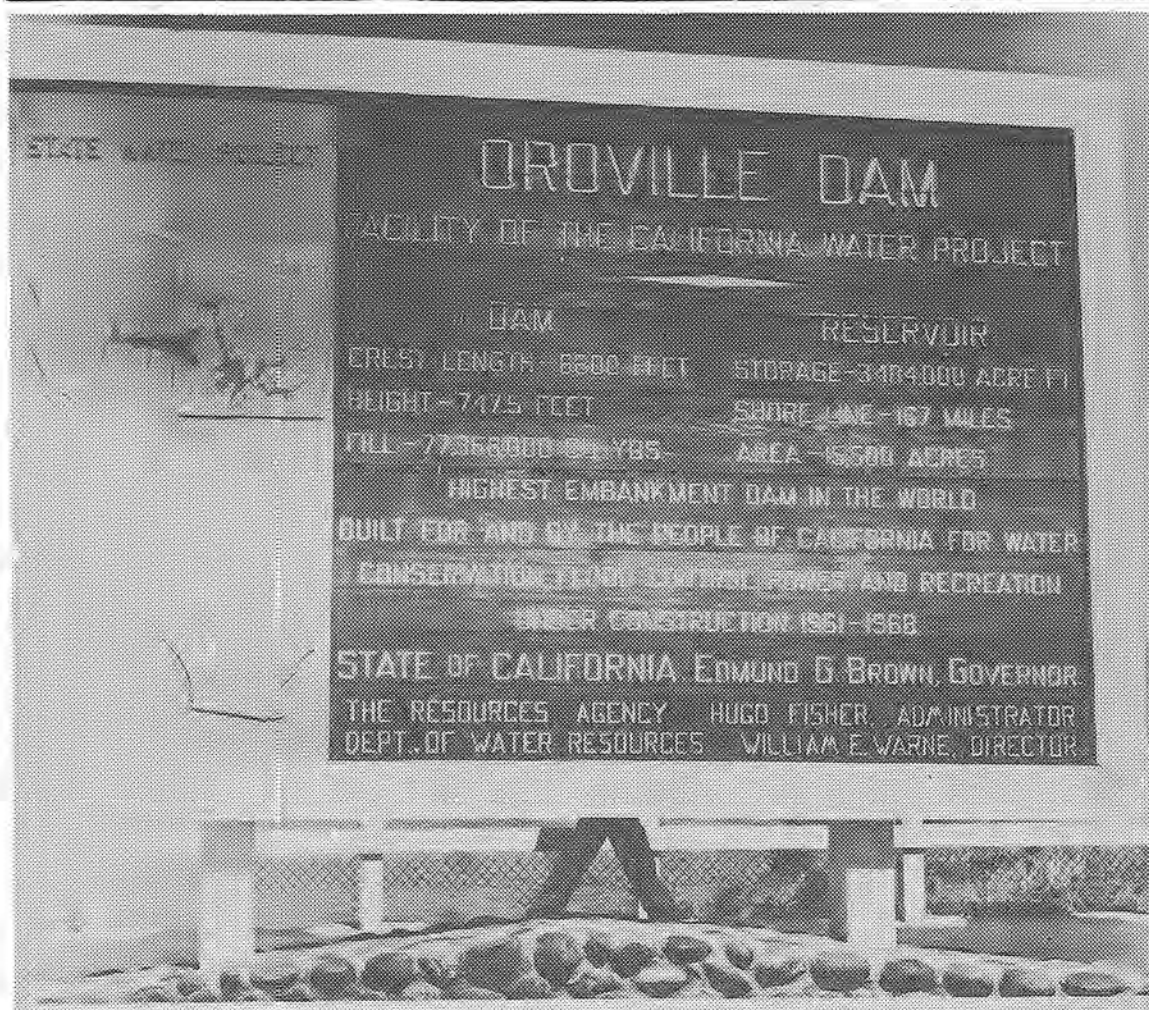 STATE WATER PROJECT
OROVILLE DAM
FACILITY OF THE CALIFORNIA WATER PROJECT
DAM
CREST LENGTH-6800 FEET
HEIGHT-747.5 FEET
FILL-77,368,000 CU. YDS.
RESERVOIR
STORAGE-3484000 ACRE FT
SHORE LINE-167 MILES
AREA-15,500 ACRES
HIGHEST EMBANKMENT DAM IN THE WORLD
BUILT FOR AND BY THE PEOPLE OF CALIFORNIA FOR WATER
CONSERVATION, FLOOD CONTROL, POWER AND RECREATION
UNDER CONSTRUCTION 1961-1968
STATE OF CALIFORNIA, EDMUND G BROWN, GOVERNOR
THE RESOURCES AGENCY HUGO FISHER, ADMINISTRATOR
DEPT. OF WATER RESOURCES WILLIAM E. WARNE, DIRECTOR